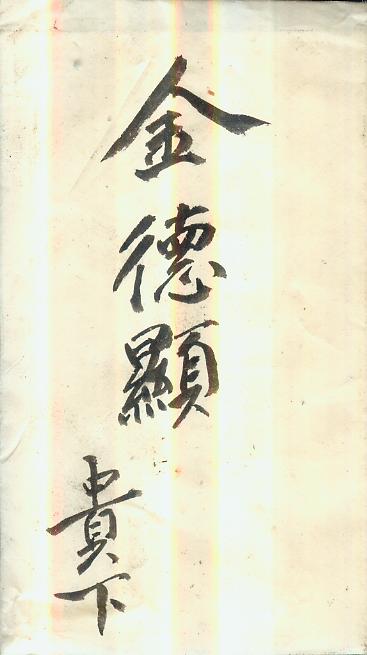 金德顯
貴下